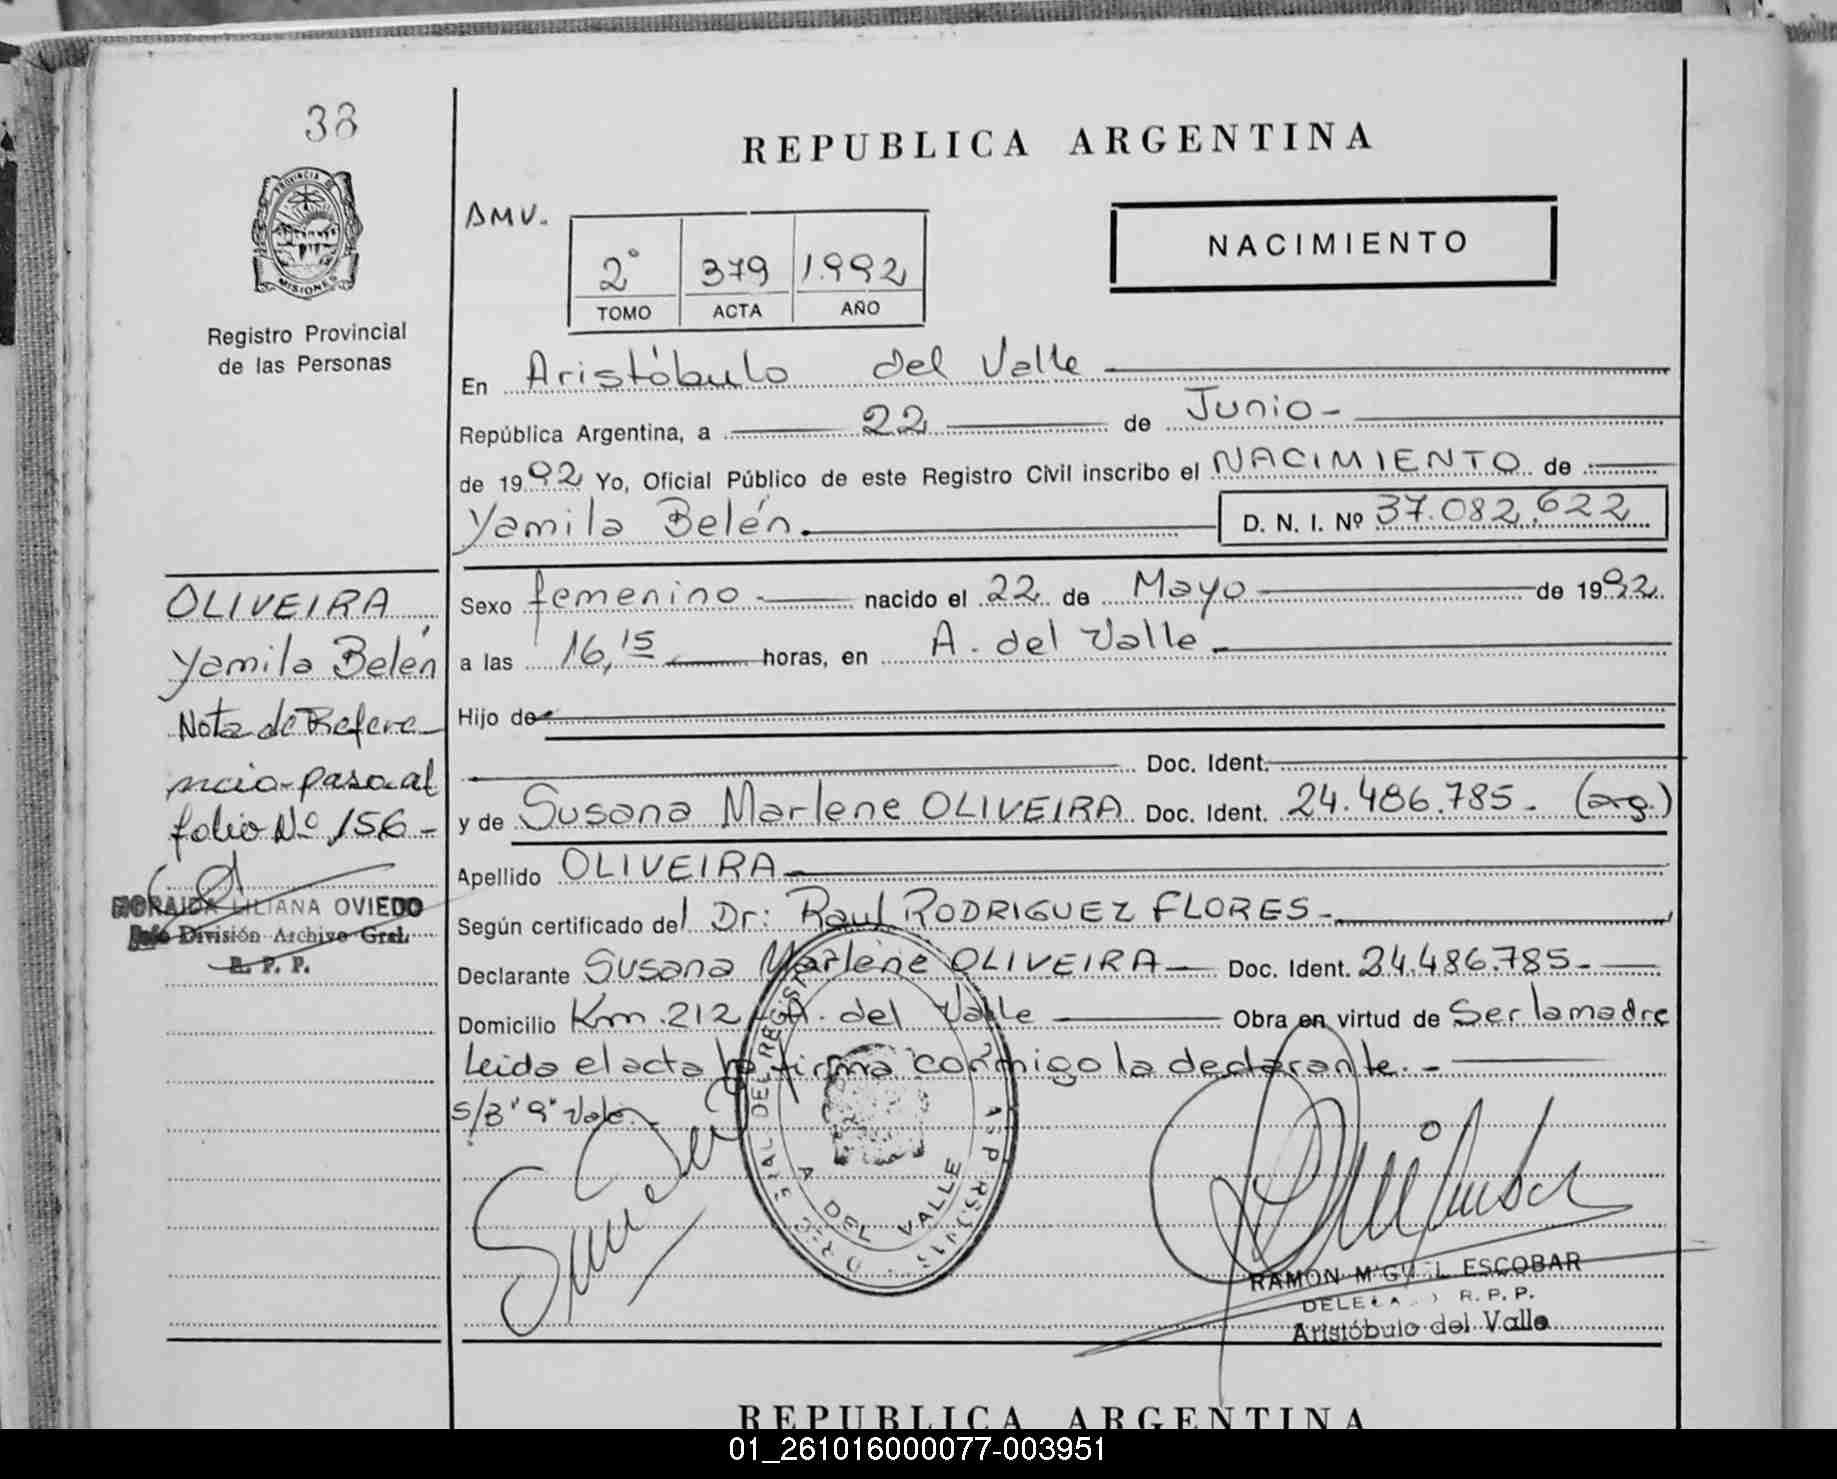 38
PROVINCIA DE
MISIONES
Registro Provincial
de las Personas
REPUBLICA ARGENTINA
DMV.
2° 379 1.992
TOMO ACTA AÑO
NACIMIENTO
En Aristóbulo del Valle
República Argentina, a 22 de Junio-
de 1992 Yo, Oficial Público de este Registro Civil inscribo el NACIMIENTO de
Yamila Belén. D. N. I. Nº 37.082.622
Sexo femenino nacido el 22 de Mayo de 1992.
a las 16,15 horas, en A. del Valle
Hijo de
Doc. Ident.
y de Susana Marlene OLIVEIRA Doc. Ident. 24.486.785. (arg.)
Apellido OLIVEIRA
Según certificado del Dr: Raul RODRIGUEZ FLORES-
Declarante Susana Marlene OLIVEIRA Doc. Ident. 24.486.785-
Domicilio Km. 212 A. del Valle Obra en virtud de Ser la madre
Leida el acta la firma conmigo la declarante.-
S/B "9" Vale.-
OLIVEIRA
Yamila Belén
Nota de Refere-
ncia-pasa al
folio Nº 156-
LILIANA OVIEDO
Jefe División Archivo Gral.
R. P. P.
A. DEL VALLE
RAMON MIGUEL ESCOBAR
DELEGADO R. P. P.
Aristóbulo del Valle
REPUBLICA ARGENTINA
01_261016000077-003951